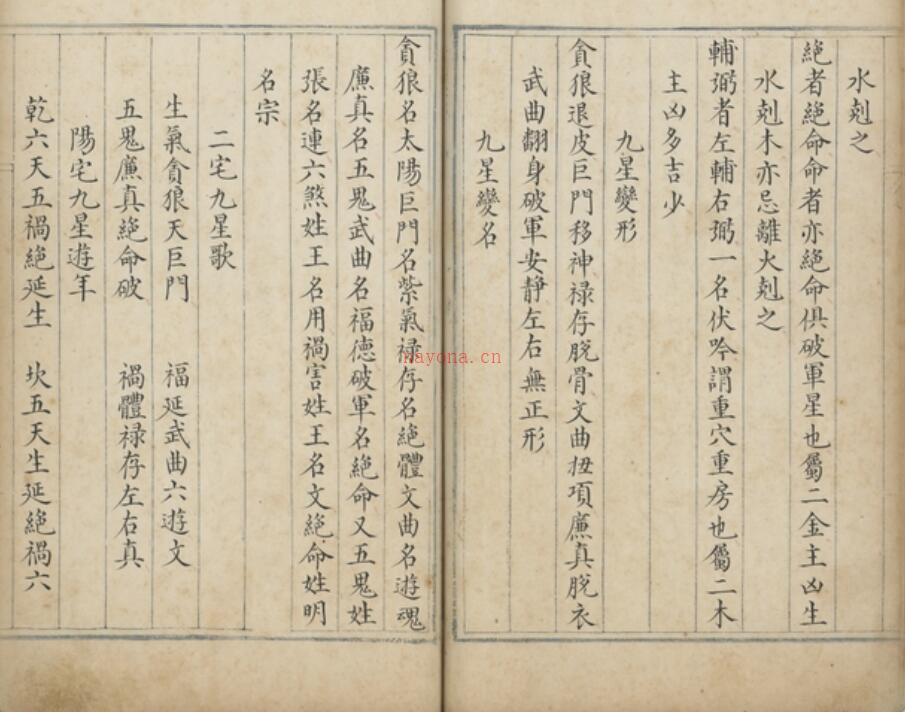 水剋之
絕者絕命命者亦絕命俱破軍星也屬二金主凶生
水剋木亦忌離火剋之
輔弼者左輔右弼一名伏吟謂重穴重房也屬二木
主凶多吉少
九星變形
貪狼退皮巨門移神祿存脫骨文曲扭項廉真脫衣
武曲翻身破軍安靜左右無正形
九星變名
貪狼名太陽巨門名紫氣祿存名絕體文曲名遊魂
廉真名五鬼武曲名福德破軍名絕命又五鬼姓
張名連六煞姓王名用禍害姓王名文絕命姓明
名宗
二宅九星歌
生氣貪狼天巨門 福延武曲六遊文
五鬼廉真絕命破 禍體祿存左右真
陽宅九星遊年
乾六天五禍絕延生 坎五天生延絕禍六
nayona.cn